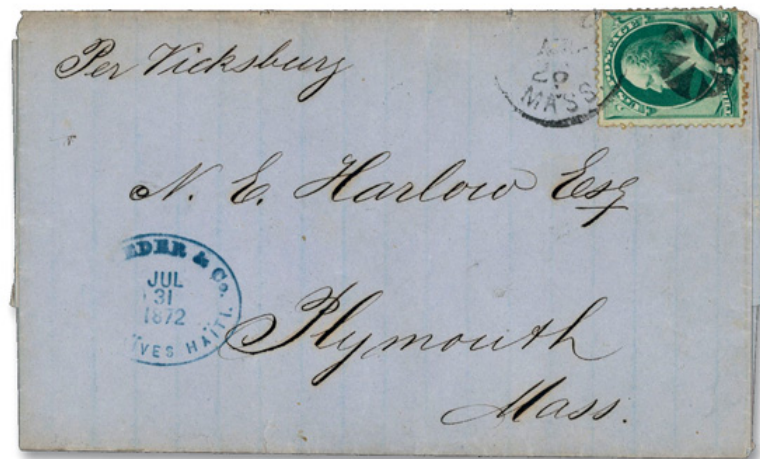 Per Vicksburg
20
MASS
POSTAGE
N. E. Harlow Esq
EDER & Co.
JUL
31
1872
ÏVES HAÏTI.
Plymouth
Mass.